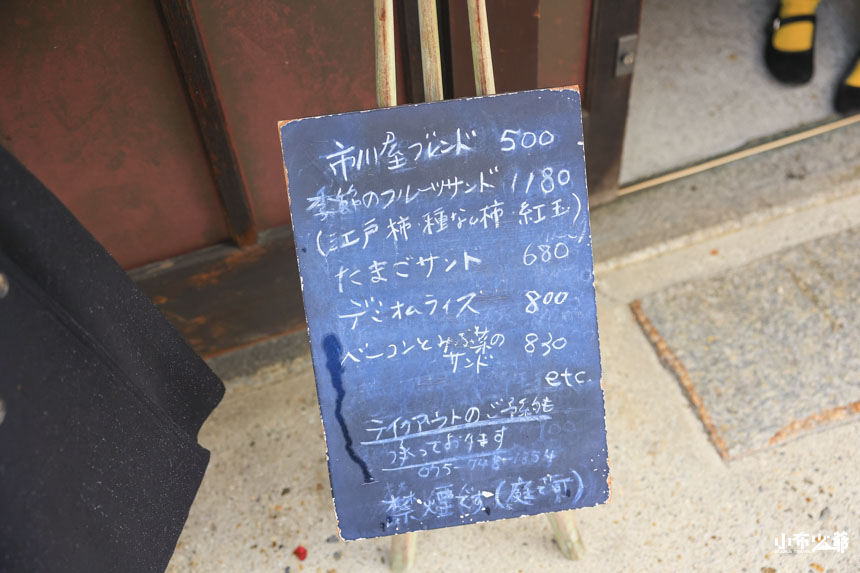 市川屋ブレンド 500
季節のフルーツサンド 1180
(江戸柿・種なし柿・紅玉)
たまごサンド 680〜
デミオムライス 800
ベーコンと
サンド 830
etc.
テイクアウトのご予約も
承っております
075-748-1354
禁煙です(庭で可)
小布少爺